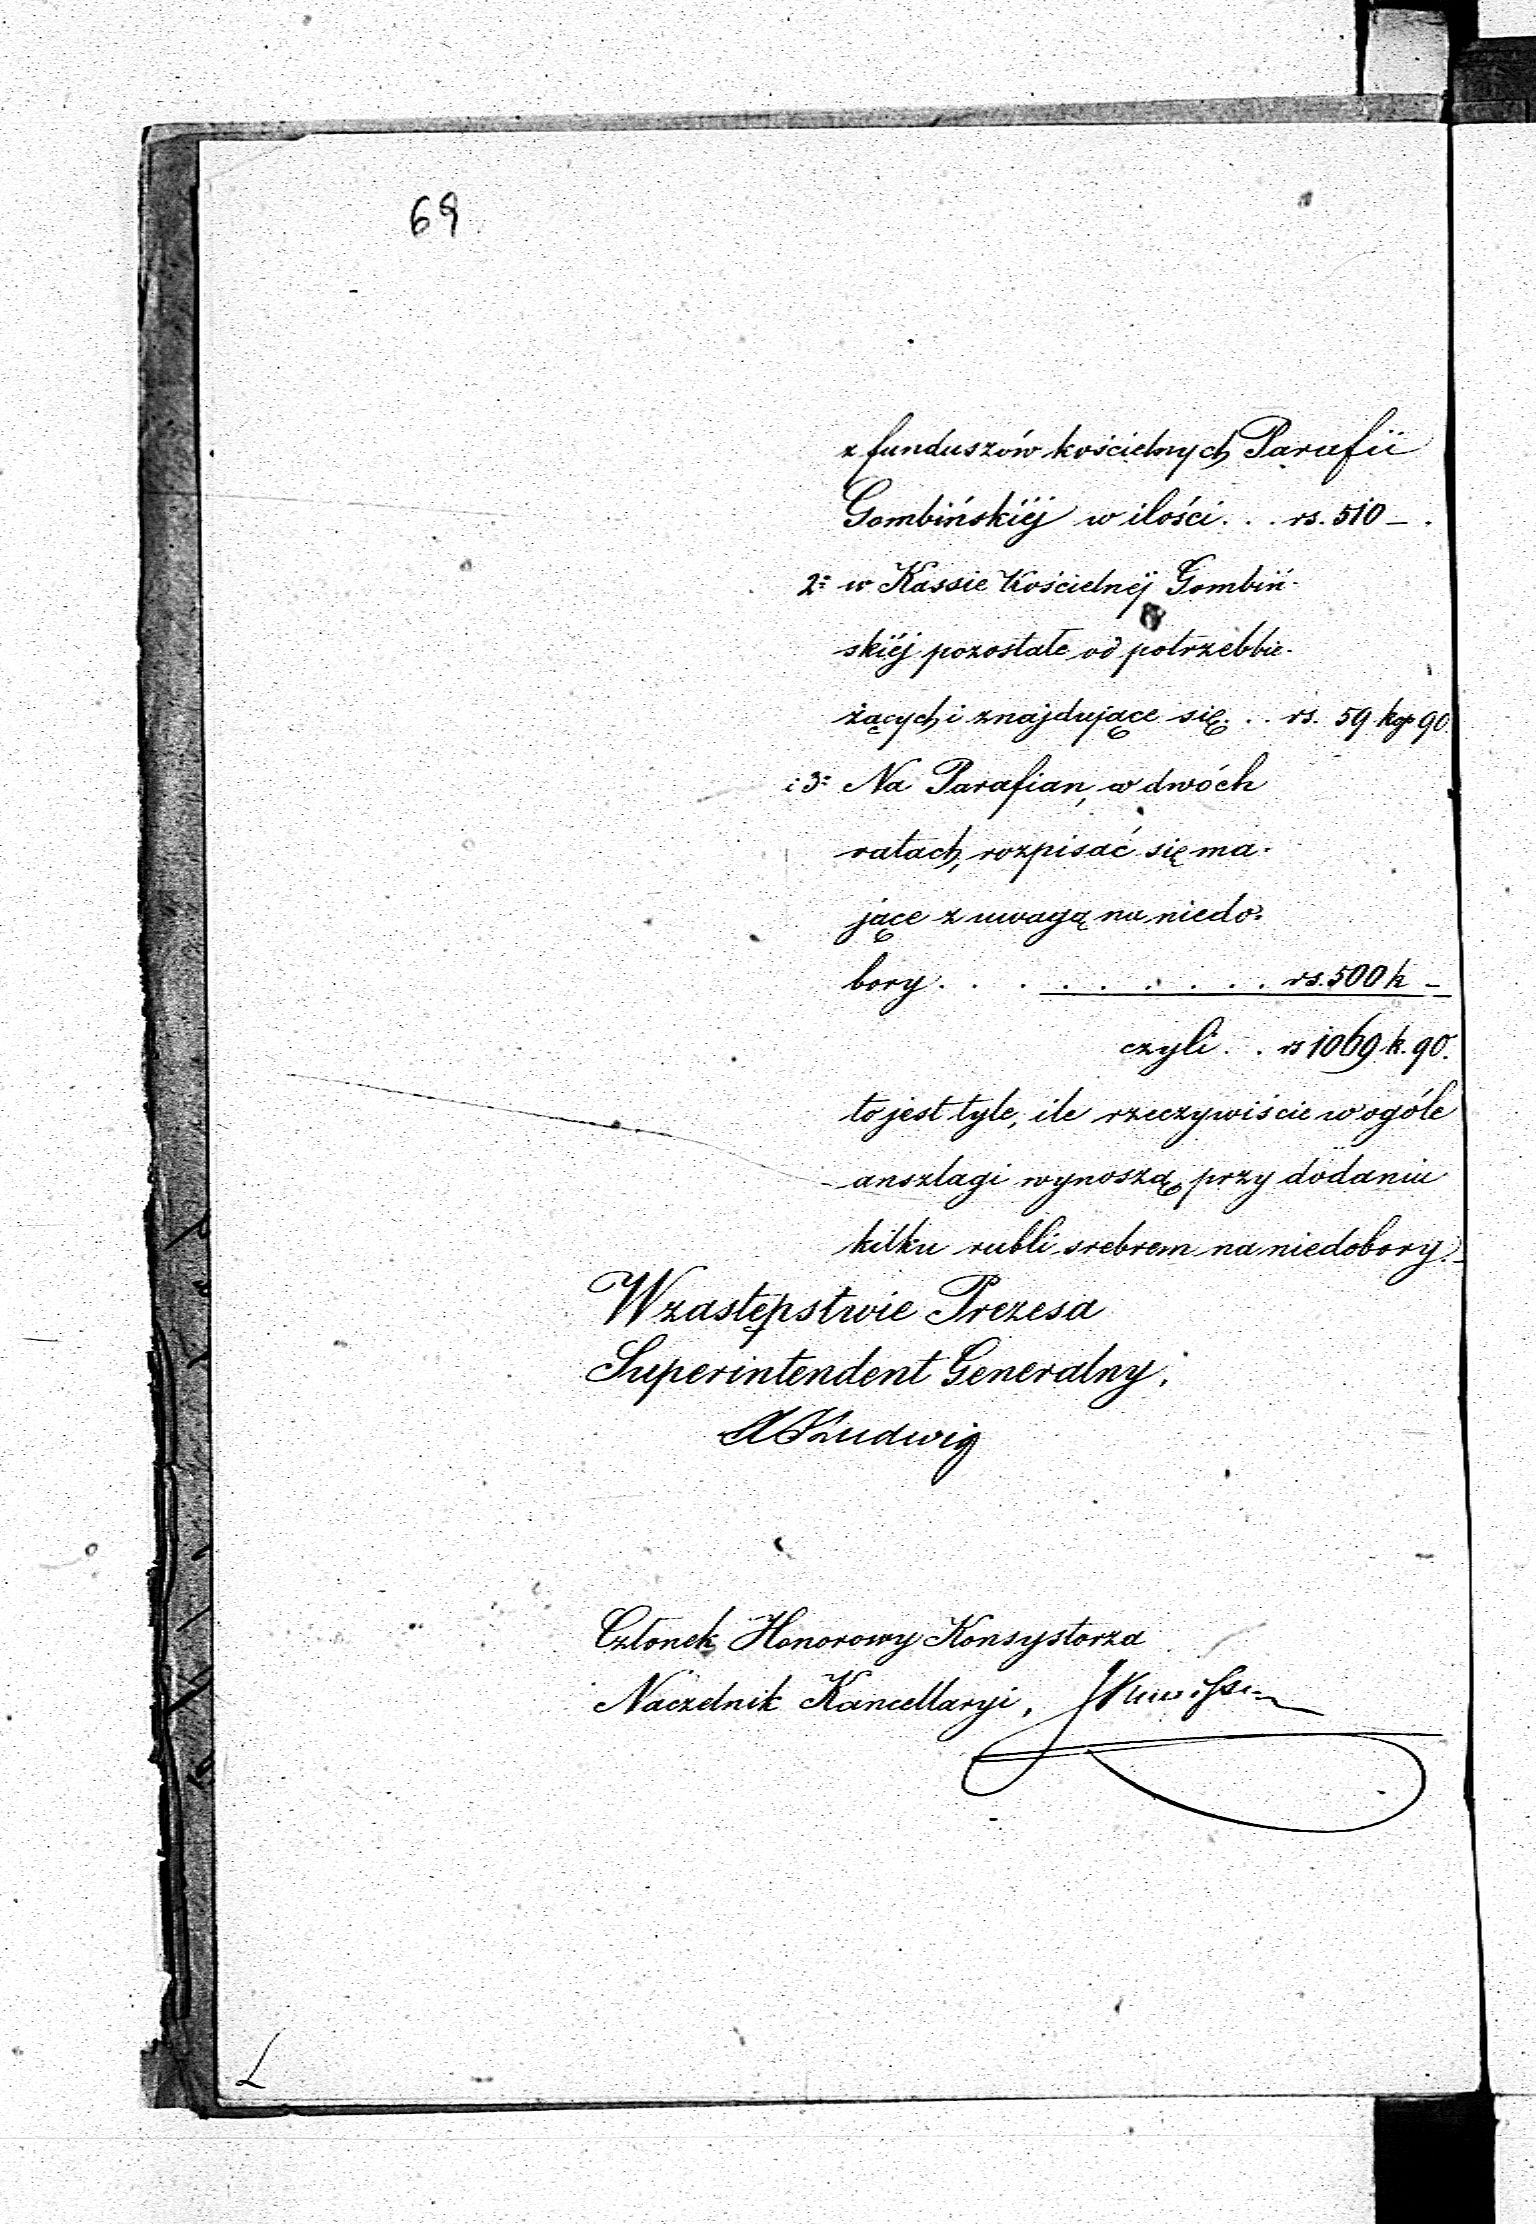 69
z funduszów kościelnych Parafii
Gombińskiéj w ilości . . . rs. 510 – .
2º w Kassie Kościelnéj Gombiń-
skiéj pozostałe od potrzeb bie-
żących i znajdujące się . . . rs. 59 kop 90.
i 3º Na Parafian, w dwóch
ratach, rozpisać się ma-
jące z uwagą na niedo-
bory . . . . . . . . . rs. 500 k –
czyli . . rs 1069 k. 90.
to jest tyle, ile rzeczywiście w ogóle
anszlagi wynoszą, przy dodaniu
kilku rubli srebrem na niedobory. –
W zastępstwie Prezesa
Superintendent Generalny,
Ludwig
Członek Honorowy Konsystorza
Naczelnik Kancellaryi,
L